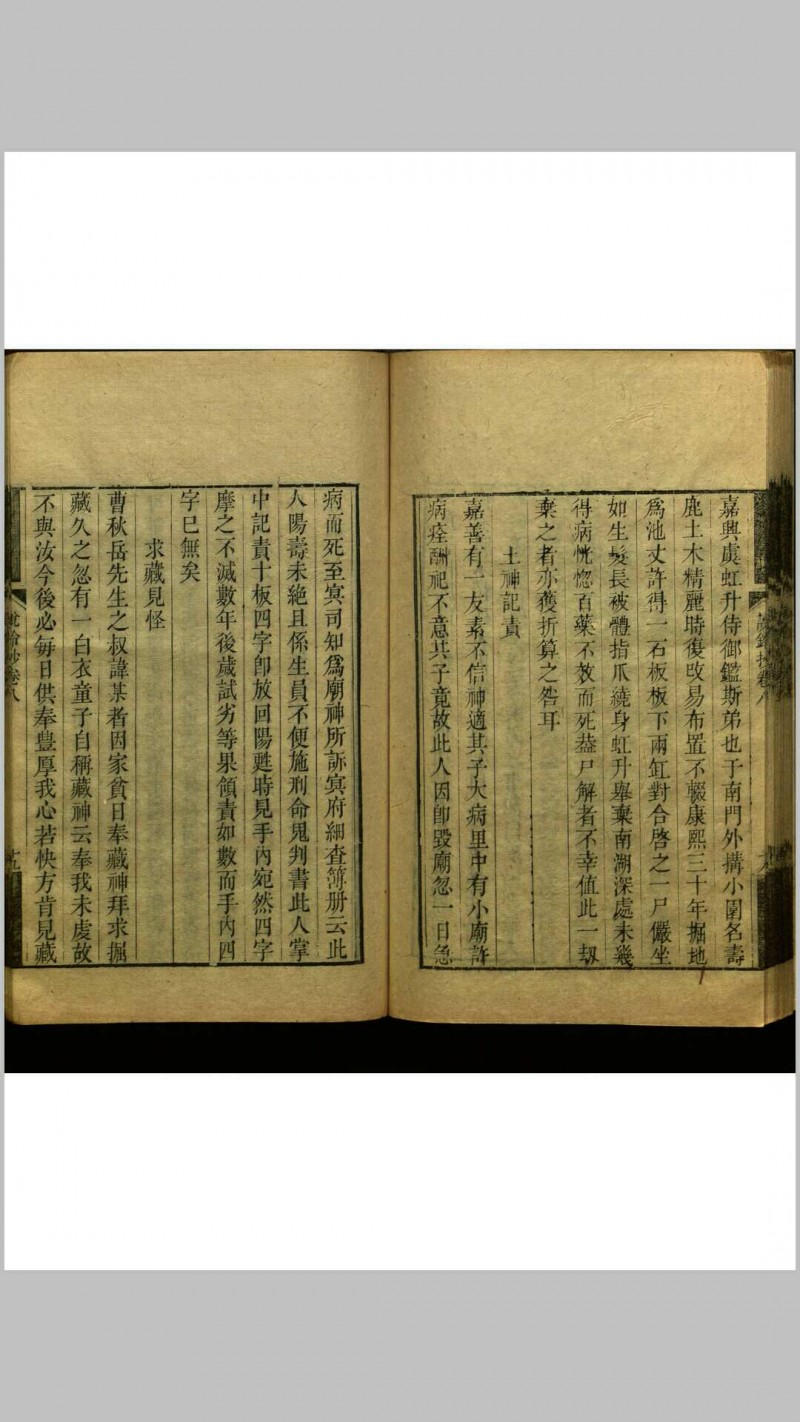 嘉興虞虹升侍御鑑斯弟也于南門外搆小園名壽
鹿土木精麗時復改易布置不輟康熙三十年掘地
爲池丈許得一石板板下兩缸對合啓之一尸儼坐
如生髮長被體指爪繞身虹升舉棄南湖深處未幾
得病恍惚百藥不救而死葢尸解者不幸值此一刼
棄之者亦獲折算之咎耳
土神記責
嘉善有一友素不信神適其子大病里中有小廟許
病痊酬祀不意其子竟故此人因卽毀廟忽一日急
病而死至冥司知爲廟神所訴冥府細查簿册云此
人陽壽未絕且係生員不便施刑命鬼判書此人掌
中記責十板四字卽放回陽甦時見手內宛然四字
摩之不滅數年後歲試劣等果領責如數而手內四
字已無矣
求藏見怪
曹秋岳先生之叔諱某者因家貧日奉藏神拜求掘
藏久之忽有一白衣童子自稱藏神云奉我未虔故
不與汝今後必每日供奉豊厚我心若快方肯見藏
說鈴抄卷八
十五